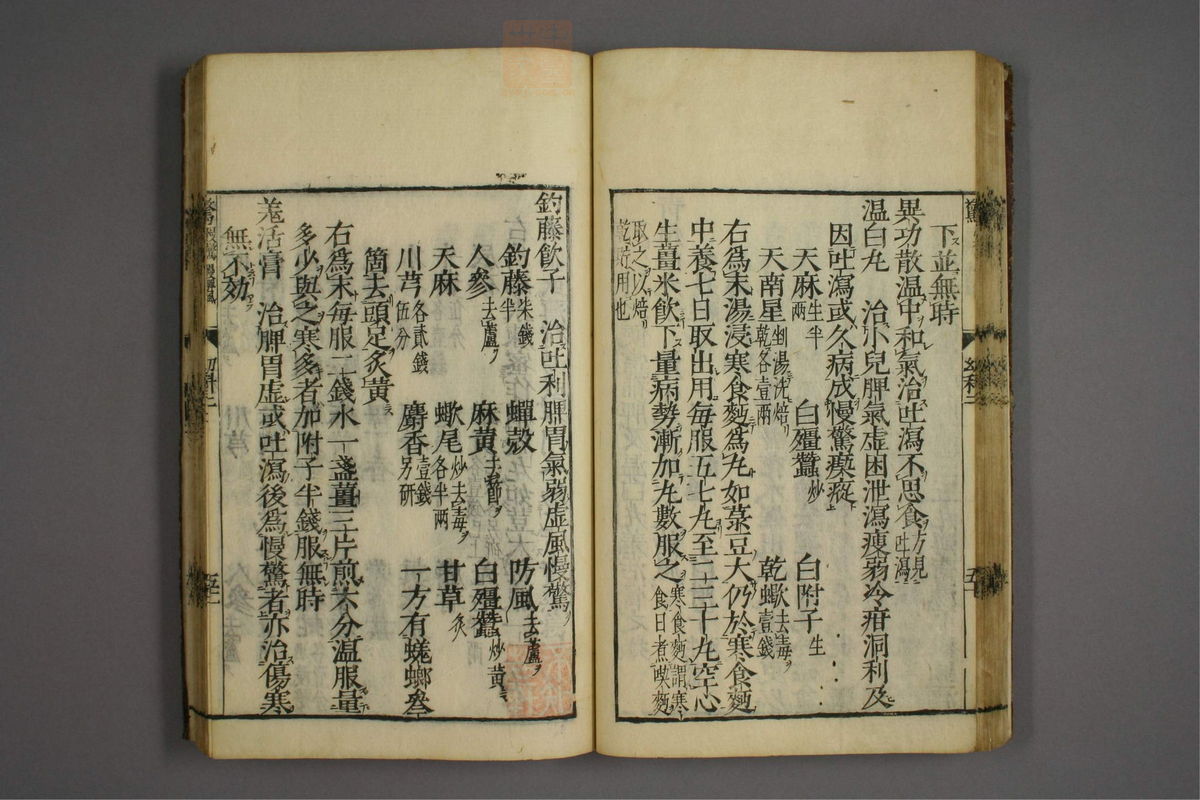 下並無時
異功散温中和氣治吐瀉不思食方見吐瀉
温白丸　治小兒脾氣虚困泄瀉瘦弱冷疳洞利及
因吐瀉或久病成慢驚瘈瘲
天麻生半兩　白殭蠶炒　白附子生
天南星剉湯洗焙乾各壹兩　乾蠍去毒壹錢
右爲末湯浸寒食麪爲丸如菉豆大仍於寒食麪
中養七日取出用每服五七丸至二三十丸空心
生薑米飲下量病勢漸加丸數服之寒食麪謂寒食日煮喫麪
取之以焙乾貯用也
釣藤飲子　治吐利脾胃氣弱虚風慢驚
釣藤柒錢半　蟬殻　防風去蘆
人參去蘆　麻黄去節　白殭蠶炒黄
天麻　蠍尾炒去毒各半兩　甘草炙
川芎各貳錢伍分　麝香壹錢另研　一方有蜣螂叄
箇去頭足炙黄
右爲末每服二錢水一盞薑三片煎六分温服量
多少與之寒多者加附子半錢服無時
羗活膏　治脾胃虚或吐瀉後爲慢驚者亦治傷寒
無不効
幼科二